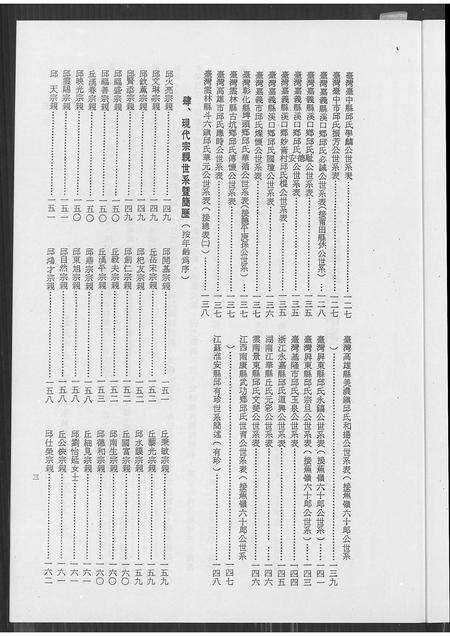 臺灣臺中縣邱氏學麟公世系表……一二七
臺灣臺中市邱氏振芳公世系表……一二七
臺灣嘉義縣溪口鄉邱氏必誠公世系表(接莆田縣休公世系)……一二八
臺灣嘉義縣溪口鄉邱氏聰公世系表……一三五
臺灣嘉義縣溪口鄉邱氏安德公世系表……一三五
臺灣嘉義縣溪口鄉妙崙村邱氏根公世系表……一三五
臺灣嘉義縣溪口鄉邱氏國瓊公世系表……一三六
臺灣嘉義市邱氏燦懷公世系表……一三七
臺灣彰化縣埤頭鄉邱氏華循公世系表……一三七
臺灣雲林縣古坑鄉邱氏傳懷公世系表……一三七
臺灣高雄市邱氏應時公世系表……一三七
臺灣雲林縣斗六鎮邱氏華元公世系表(接總表㈡)……一三八
臺灣高雄縣美濃鎮邱氏和邊公世系表(接蕉嶺六十郎公世系
)……一三九
臺灣屏東縣邱氏永鎬公世系表(接蕉嶺六十郎公世系)……一四一
臺灣屏東縣邱氏宗旦公世系表(接蕉嶺六十郎公世系)……一四三
臺灣基隆市邱氏玉泉公世系表……一四四
浙江永嘉縣邱氏道興公世系表……一四五
湖南江華縣丘氏元彩公世系表……一四六
雲南景東縣邱氏文燮公世系表……一四六
江西南康縣武功鄉邱氏世肓公世系表(接蕉嶺六十郎公世系
)……一四七
江蘇淮安縣邱有珍世系簡述(有珍)……一四八
肆、現代宗親世系暨簡歷(按年齡為序)
邱火亮宗親……一四九
邱文琳宗親……一四九
邱欽薰宗親……一四九
邱賢添宗親……一四九
邱錫盛宗親……一五〇
邱福善宗親……一五〇
丘漢春宗親……一五〇
邱映光宗親……一五〇
邱靈陽宗親……一五一
邱　天宗親……一五一
邱開基宗親……一五一
丘岳宋宗親……一五二
邱杞友宗親……一五二
邱創仁宗親……一五二
丘毅夫宗親……一五二
丘漢平宗親……一五三
邱嘉宗宗親……一五八
邱東旭宗親……一五八
邱自然宗親……一五八
邱鴻才宗親……一五八
丘秉敏宗親……一五九
丘藜光宗親……一五九
邱水謨宗親……一五九
丘國富宗親……一六〇
邱南生宗親……一六〇
邱德和宗親……一六〇
丘細見宗親……一六一
邱劉怡蕋女士……一六一
丘公俠宗親……一六一
邱仕榮宗親……一六二
三